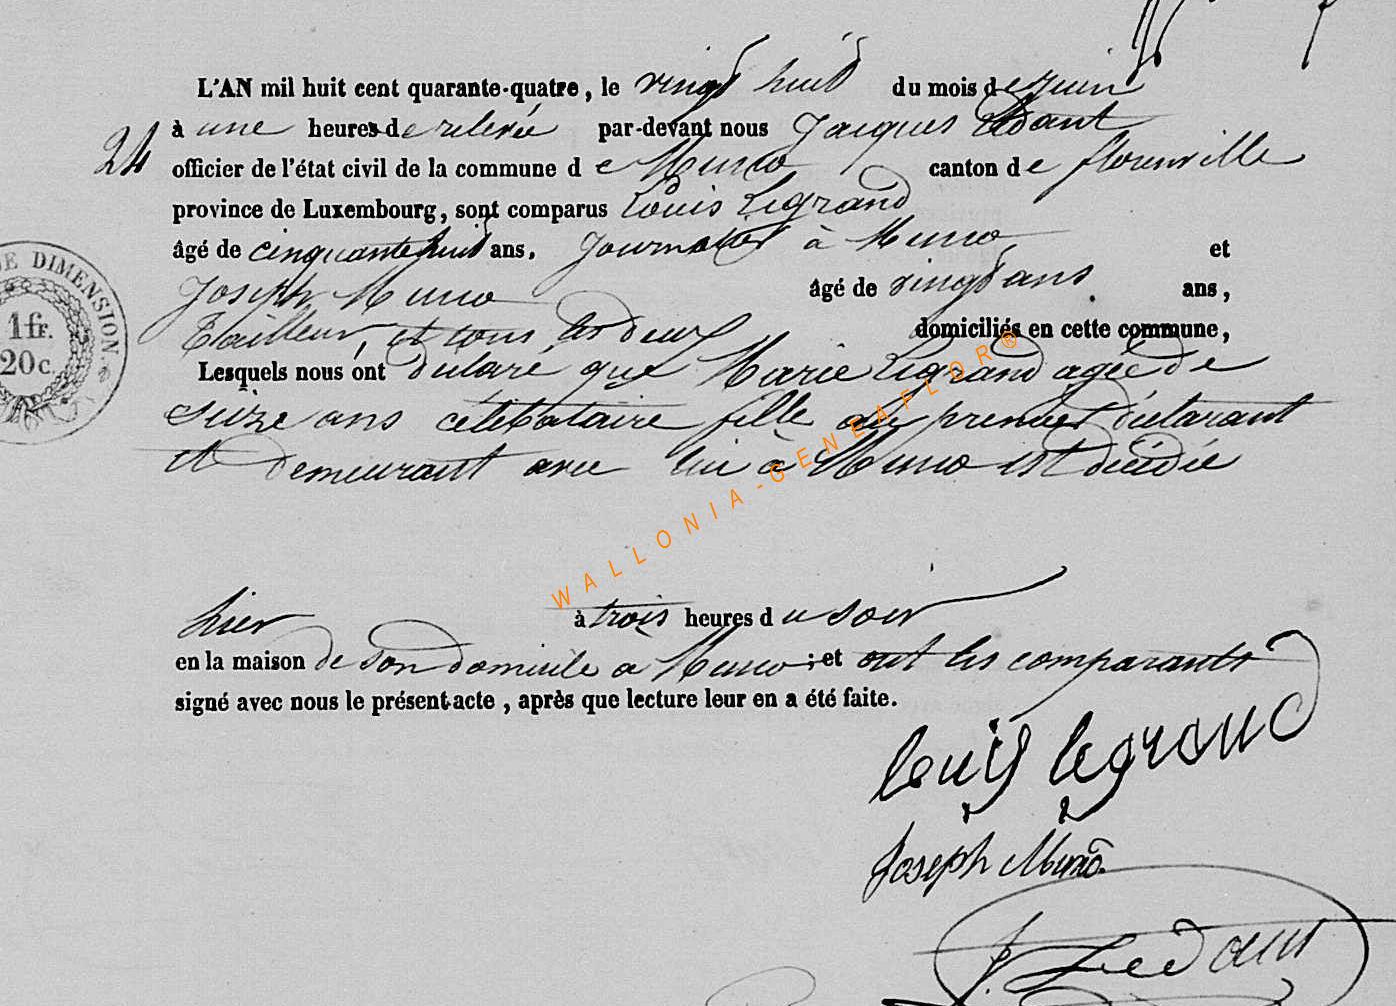 L'AN mil huit cent quarante-quatre, le vingt huit du mois de juin
24
à une heures de relevée par-devant nous Jacques Lédant
officier de l'état civil de la commune de Muno canton de florenville
province de Luxembourg, sont comparus Louis Legrand
âgé de cinquante huit ans, Journalier à Muno et
Joseph Muno âgé de vingt ans ans,
Tailleur, et tous les deux domiciliés en cette commune,
Lesquels nous ont déclaré que Marie Legrand agée de
seize ans célibataire fille du premier déclarant
et demeurant avec lui à Muno est décédée
hier à trois heures du soir
en la maison de son domicile à Muno; et ont les comparants
signé avec nous le présent acte, après que lecture leur en a été faite.
louis legrand
Joseph Muno
J Lédant
DE DIMENSION.
1 fr.
20 c.
WALLONIA-GENEAFLOR®